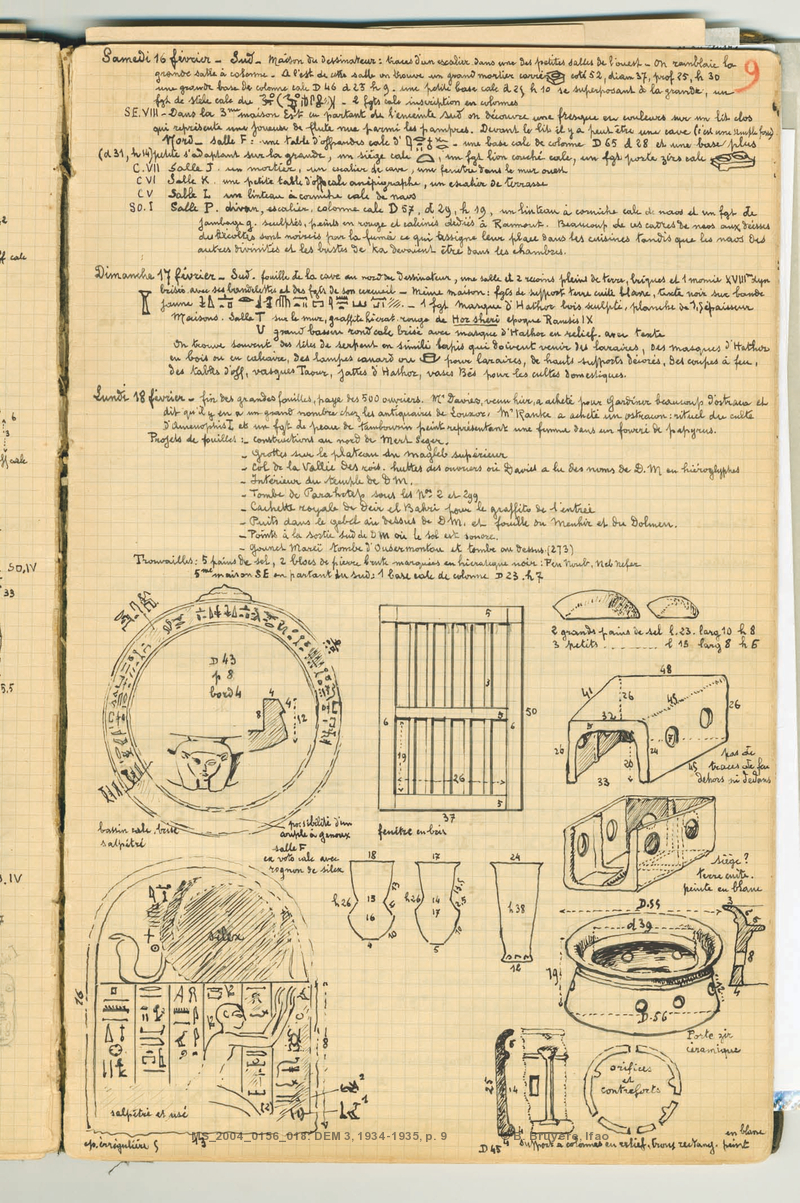 9
Samedi 16 février - Sud - Maison du dessinateur : traces d'un escalier dans une des petites salles de l'ouest - On remblaie la
grande salle à colonne - A l'est de cette salle on trouve un grand mortier carré coté 52, diam 37, prof 25, h 30
une grande base de colonne calc D 46 d 23 h 9. une petite base cal d 25 h 10 se superposant à la grande, un
fgt de stèle calc du - 2 fgts calc inscription en colonnes
S.E. VIII - Dans la 3me maison Est en partant de l'enceinte sud on découvre une fresque en couleurs sur un lit clos
qui représente une joueuse de flute nue parmi les pampres. Devant le lit il y a peut être une cave (c'est une simple fosse)
Nord - salle F : une table d'offrandes calc d' - une base calc de colonne D 65 d 28 et une base plus
(d 31, h 14) petite s'adaptant sur la grande, un siège calc, un fgt lion couché calc, un fgt porte zirs calc
C. VII Salle J. un mortier, un escalier de cave, une fenêtre dans le mur ouest
C VI Salle K. une petite table d'off calc anépigraphe, un escalier de terrasse
C V Salle L un linteau à corniche calc de naos
SO. I Salle P. divan, escalier, colonne calc D 57, d 29, h 19, un linteau à corniche calc de naos et un fgt de
jambage g. sculptés, peints en rouge et calcinés dédiés à Rannout. Beaucoup de ces cadres de naos aux déesses
des récoltes sont noircis par la fumée ce qui assigne leur place dans les cuisines tandis que les naos des
autres divinités et les bustes de Ka devaient être dans les chambres.
Dimanche 17 février - Sud. fouille de la cave au nord du dessinateur, une salle et 2 recoins pleins de terre, briques et 1 momie XVIIIe dyn
brisée avec ses bandelettes et des fgts de son cercueil - Même maison : fgts de support terre cuite blanc, texte noir sur bande
jaune - 1 fgt masque d'Hathor bois sculpté, planche de 1,5 épaisseur
Maisons. Salle T sur le mur, graffite hiérat. rouge de Hor sheri époque Ramsès IX
V grand bassin rond calc brisé avec masque d'Hathor en relief, avec texte
On trouve souvent des têtes de serpent en simili lapis qui doivent venir des laraires, des masques d'Hathor
en bois ou en calcaire, des lampes canard ou pour laraires, de hauts supports décorés, des coupes à feu,
des tables d'off, vasques Taour, jattes d'Hathor, vases Bès pour les cultes domestiques.
Lundi 18 février - fin des grandes fouilles, paye des 500 ouvriers. Mr Davies, venu hier, a acheté pour Gardiner beaucoup d'ostraca et
dit qu'il y en a un grand nombre chez les antiquaires de Louxor. Mr Ranke a acheté un ostracon : rituel du culte
d'Amenophis I et un fgt de peau de tambourin peint représentant une femme dans un fourré de papyrus.
Projets de fouilles : - constructions au nord de Mert Seger.
- Grottes sur le plateau du magleb supérieur
- Col de la Vallée des rois. huttes des ouvriers où Davies a lu des noms de D.M en hiéroglyphes
- Intérieur du temple de D M.
- Tombe de Parahotep sous les Nos 2 et 299
- Cachette royale de Deir el Bahri pour le graffito de l'entrée
- Puits dans le gebel au dessus de D M. et fouille du Menhir et du Dolmen.
- Points à la sortie sud de D M où le sol est sonore.
- Gournet Mareï tombe d'Ousermontou et tombe au dessus (273)
Trouvailles : 5 pains de sel, 2 blocs de pierre brute marquées en hiératique noir : Pen Noub, Neb Nefer
5me maison SE en partant du sud : 1 base calc de colonne D 23 h 7
D 43
p 8
bord 4
8 4 4 12
bassin calc brisé
salpêtré
possibilité d'un
couple à genoux
5
3
6 5 6 50
19
26
5
37
fenêtre en bois
2 grands pains de sel l. 23. larg 10 h 8
3 petits ........ l 15 larg 8 h 5
48
41 26 45 26
32
5
26 24 7
20 45
33
pas de
traces de feu
dehors ni dedans
siège ?
terre cuite.
peinte en blanc
salle F
ex voto calc avec
rognon de silex
silex
26
salpêtré et usé
ép. irrégulière 5
13
(2) (1)
2
1
18
h 26 15
16
4
17
h 26 14
17
5
24
h 38
12
D. 55
d 39
19
D. 56
3
5
8
4
Porte zir
céramique
25
14
4
D 45
orifices
et
contreforts
support à colonnes en relief, trous rectang. peint
en blanc
MS_2004_0156_018. DEM 3, 1934-1935, p. 9
© B. Bruyère, Ifao